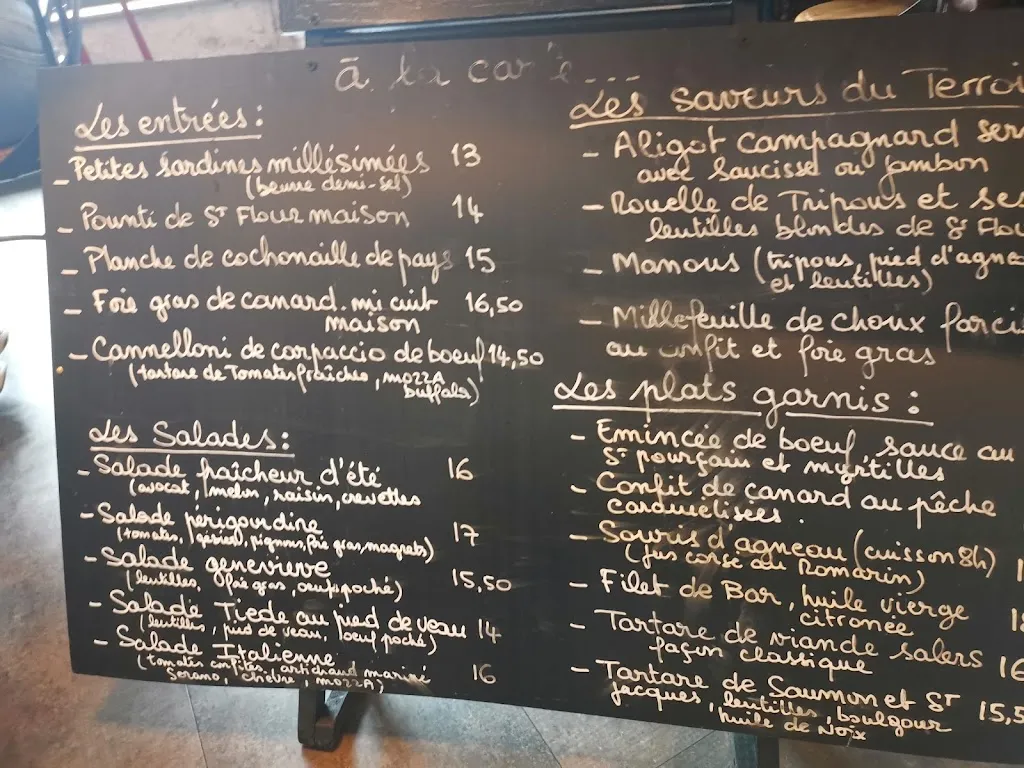 à la carte...
Les entrées :
- Petites Sardines millésimées 13
(beurre demi-sel)
- Pounti de St Flour maison 14
- Planche de cochonaille de pays 15
- Foie gras de canard mi cuit 16,50
maison
- Cannelloni de carpaccio de boeuf 14,50
(tartare de Tomates fraîches, mozza
buffala)
Les Salades :
- Salade fraîcheur d'été 16
(avocat, melon, raisin, crevettes
- Salade périgourdine 17
(tomates, gésiers, pignons, foie gras, magrets)
- Salade genevieve 15,50
(lentilles, foie gras, oeuf poché)
- Salade Tiede au pied de veau 14
(lentilles, pied de veau, oeuf poché)
- Salade Italienne 16
(tomates confites, artichaud mariné
Serano, chèvre, mozza)
Les saveurs du Terroi
- Aligot Campagnard ser
avec Saucisse ou Jambon
- Rouelle de Tripous et ses
lentilles blondes de St Flou
- Manous (tripous, pied d'agne
et lentilles)
- Millefeuille de choux farci
au confit et foie gras
Les plats garnis :
- Emincée de boeuf sauce au
St pourçain et myrtilles
- Confit de canard au pêche
caramelisées.
- Souris d'agneau (cuisson 8h)
(jus corsé au Romarin)
- Filet de Bar, huile vierge
citronée
- Tartare de viande salers 16
façon classique
- Tartare de Saumon et St 15,5
jacques, lentilles, boulgour
huile de Noix